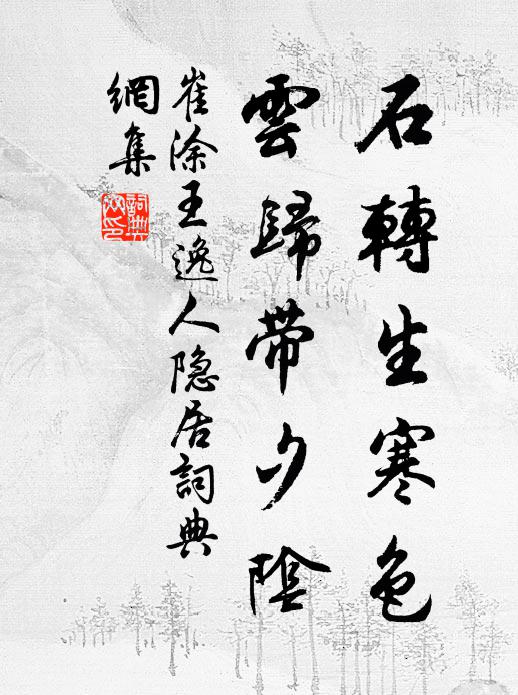 石轉生寒色
雲歸帶夕陰
崔涂王逸人隐居詞典
網集
詞典
网印